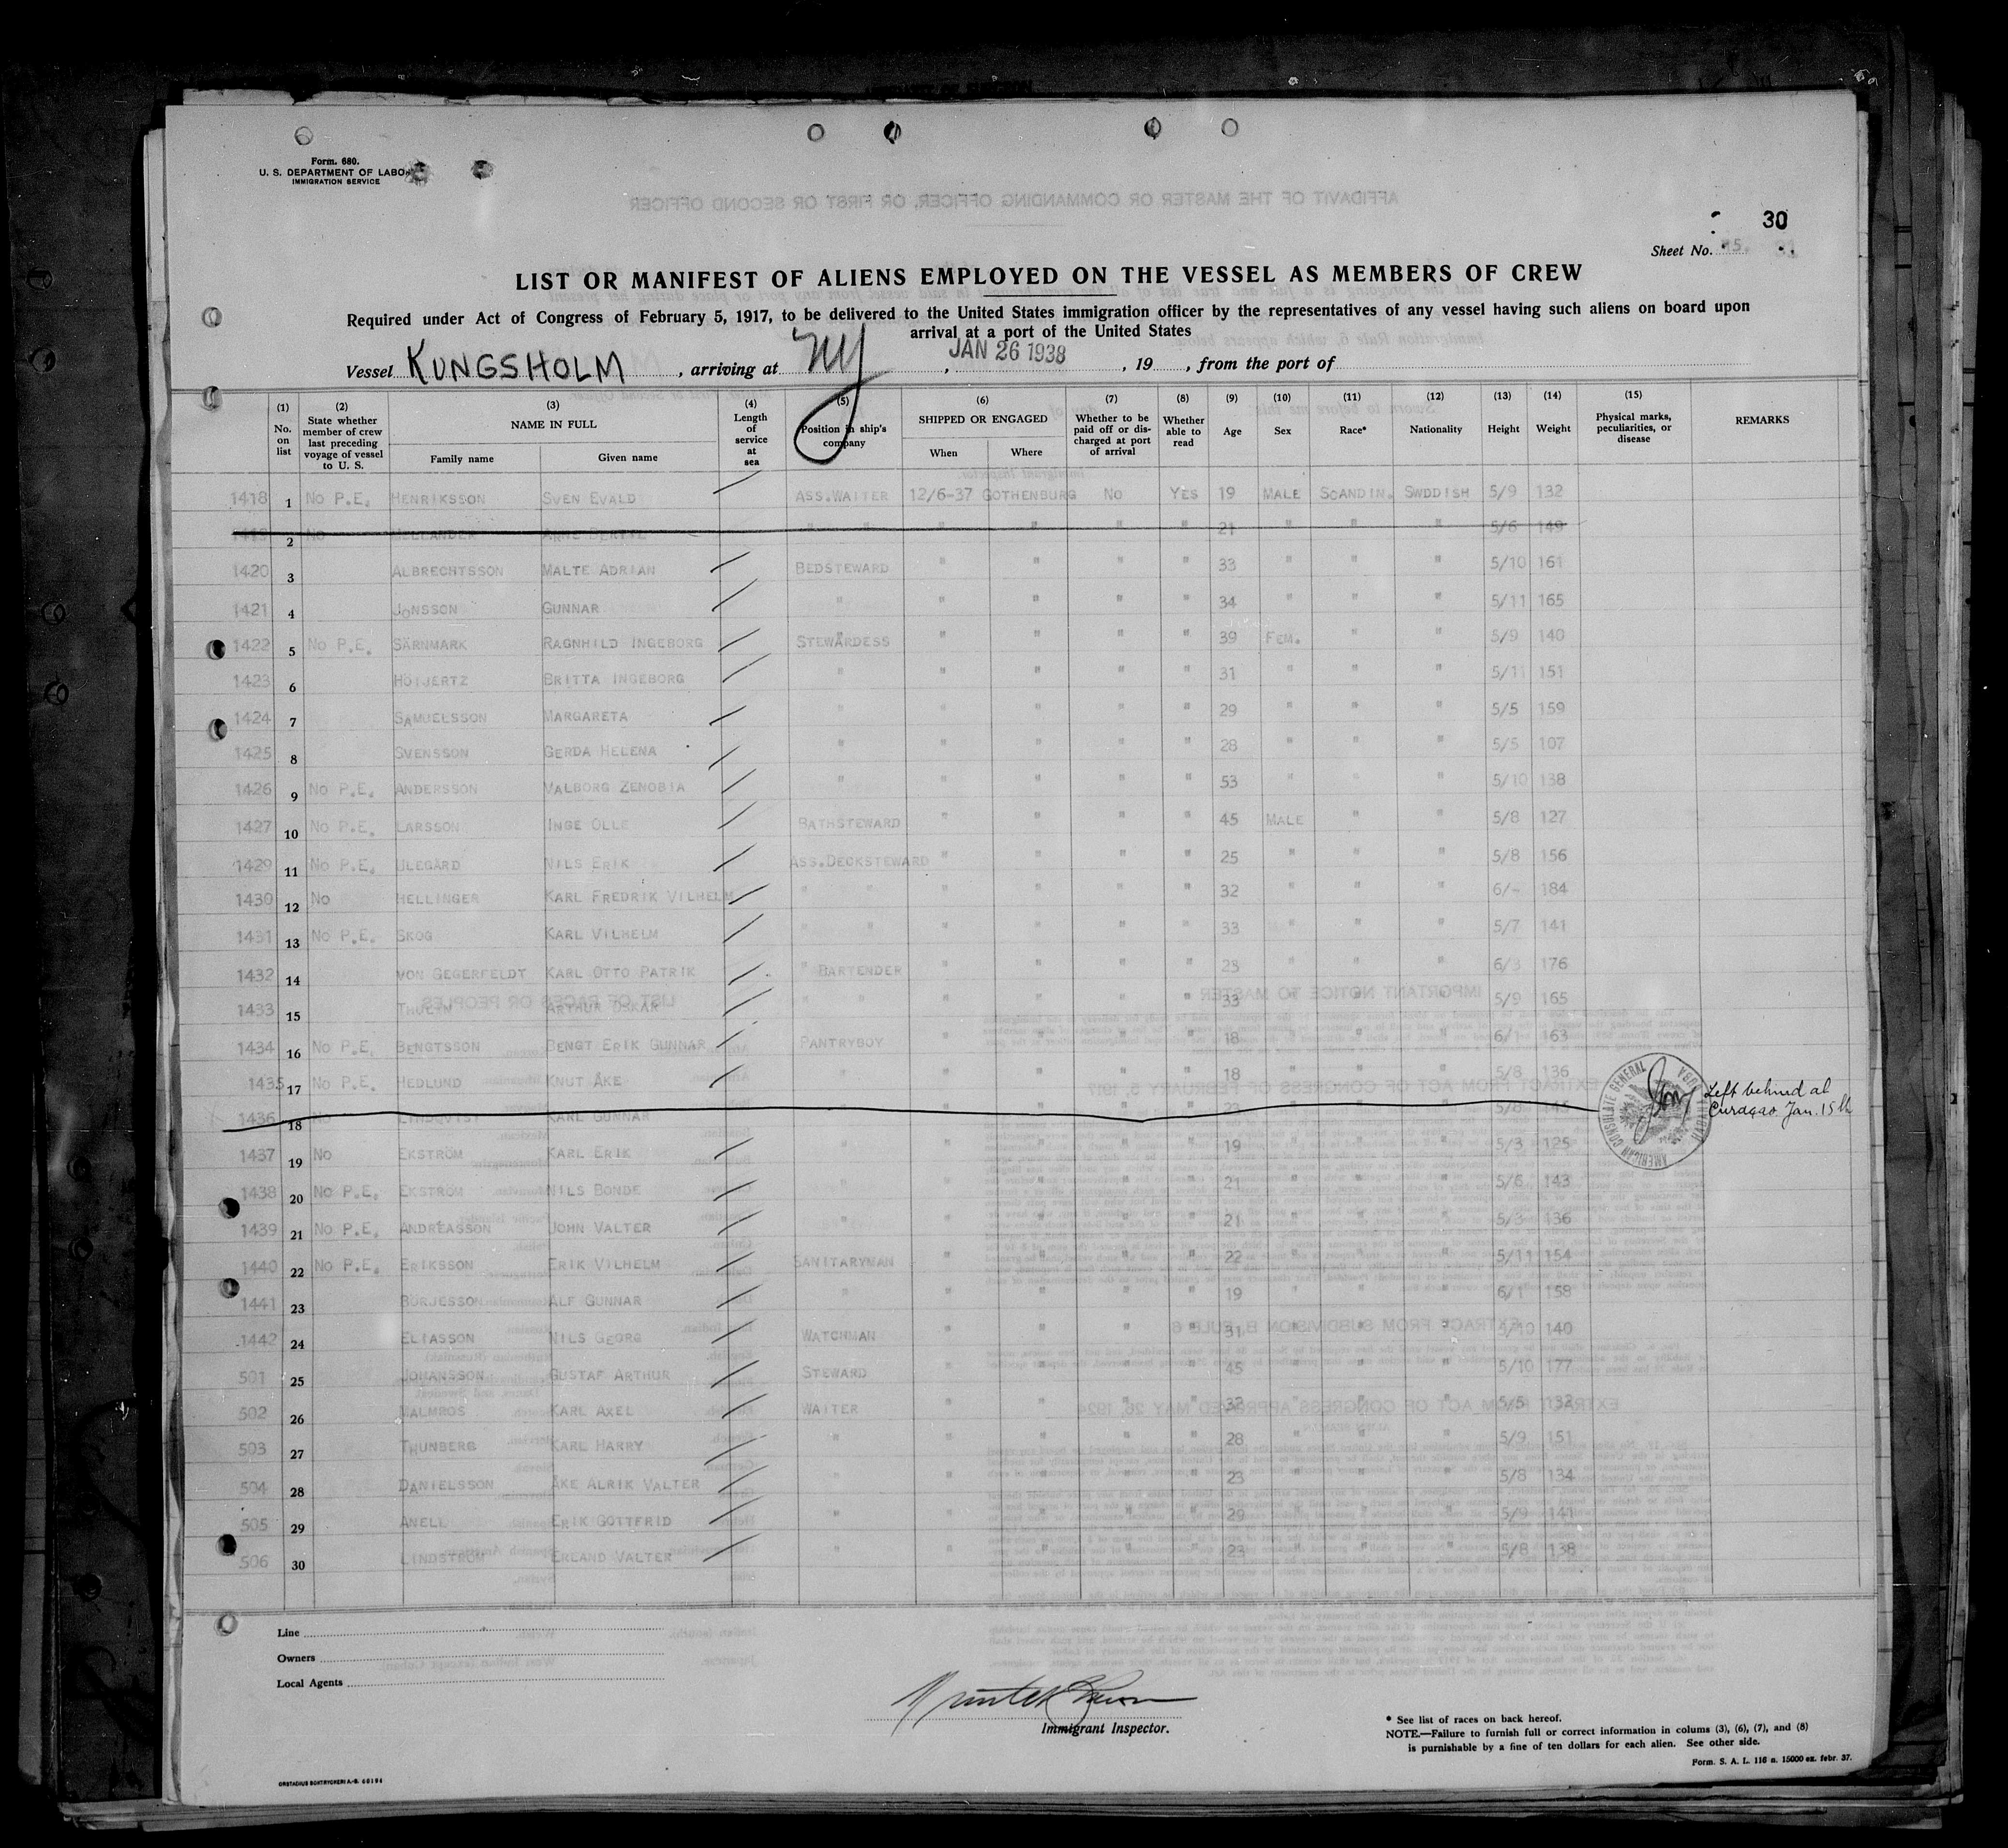 Form. 680.
U. S. DEPARTMENT OF LABOR
IMMIGRATION SERVICE
30
Sheet No.
LIST OR MANIFEST OF ALIENS EMPLOYED ON THE VESSEL AS MEMBERS OF CREW
Required under Act of Congress of February 5, 1917, to be delivered to the United States immigration officer by the representatives of any vessel having such aliens on board upon
arrival at a port of the United States
Vessel KUNGSHOLM, arriving at NY, JAN 26 1938, 19 , from the port of
(1) No. on list (2) State whether member of crew last preceding voyage of vessel to U. S. (3) NAME IN FULL Family name Given name (4) Length of service at sea (5) Position in ship's company (6) SHIPPED OR ENGAGED When Where (7) Whether to be paid off or discharged at port of arrival (8) Whether able to read (9) Age (10) Sex (11) Race* (12) Nationality (13) Height (14) Weight (15) Physical marks, peculiarities, or disease REMARKS
1418 1 No P.E. HENRIKSSON SVEN EVALD ASS.WAITER 12/6-37 GOTHENBURG No YES 19 MALE SCANDIN. SWDDISH 5/9 132
1419 2 No ARNE BERTIL " " " " " " 21 " " " 5/6 149
1420 3 ALBRECHTSSON MALTE ADRIAN BEDSTEWARD " " " " 33 " " " 5/10 161
1421 4 JONSSON GUNNAR " " " " " 34 " " " 5/11 165
1422 5 No P.E. SÄRNMARK RAGNHILD INGEBORG STEWARDESS " " " " 39 FEM. " " 5/9 140
1423 6 HÖIJERTZ BRITTA INGEBORG " " " " " 31 " " " 5/11 151
1424 7 SAMUELSSON MARGARETA " " " " " 29 " " " 5/5 159
1425 8 SVENSSON GERDA HELENA " " " " " 28 " " " 5/5 107
1426 9 No P.E. ANDERSSON VALBORG ZENOBIA " " " " " 53 " " " 5/10 138
1427 10 No P.E. LARSSON INGE OLLE BATHSTEWARD " " " " 45 MALE " " 5/8 127
1429 11 No P.E. ULEGÅRD NILS ERIK ASS.DECKSTEWARD " " " " 25 " " " 5/8 156
1430 12 No HELLINGER KARL FREDRIK VILHELM " " " " " " 32 " " " 6/- 184
1431 13 No P.E. SKOG KARL VILHELM " " " " " " 33 " " " 5/7 141
1432 14 VON GEGERFELDT KARL OTTO PATRIK " BARTENDER " " " " 23 " " " 6/3 176
1433 15 THULIN ARTHUR OSKAR " " " " " " 33 " " " 5/9 165
1434 16 No P.E. BENGTSSON BENGT ERIK GUNNAR PANTRYBOY " " " " 18 " " " 6/1 163
1435 17 No P.E. HEDLUND KNUT ÅKE " " " " " 18 " " " 5/8 136
1436 18 No LINDQVIST KARL GUNNAR " " " " " 23 " " " 5/8 143 Left behind at
Curaçao Jan. 15th
AMERICAN CONSULATE GENERAL
1437 19 No EKSTRÖM KARL ERIK " " " " " 19 " " " 5/3 125
1438 20 No P.E. EKSTRÖM NILS BONDE " " " " " 21 " " " 5/6 143
1439 21 No P.E. ANDREASSON JOHN VALTER " " " " " 21 " " " 5/3 136
1440 22 No P.E. ERIKSSON ERIK VILHELM SANITARYMAN " " " " 22 " " " 5/11 154
1441 23 BÖRJESSON ALF GUNNAR " " " " " 19 " " " 6/1 158
1442 24 ELIASSON NILS GEORG WATCHMAN " " " " 31 " " " 5/10 140
501 25 JOHANSSON GUSTAF ARTHUR STEWARD " " " " 45 " " " 5/10 177
502 26 MALMROS KARL AXEL WAITER " " " " 32 " " " 5/5 132
503 27 THUNBERG KARL HARRY " " " " " 28 " " " 5/9 151
504 28 DANIELSSON ÅKE ALRIK VALTER " " " " " 23 " " " 5/8 134
505 29 ANELL ERIK GOTTFRID " " " " " 29 " " " 5/9 141
506 30 LINDSTRÖM ERLAND VALTER " " " " " 23 " " " 5/8 138
Line
Owners
Local Agents
Immigrant Inspector.
* See list of races on back hereof.
NOTE.—Failure to furnish full or correct information in colums (3), (6), (7), and (8)
is punishable by a fine of ten dollars for each alien. See other side.
Form. S. A. L. 116 n. 15000 ex. febr. 37.